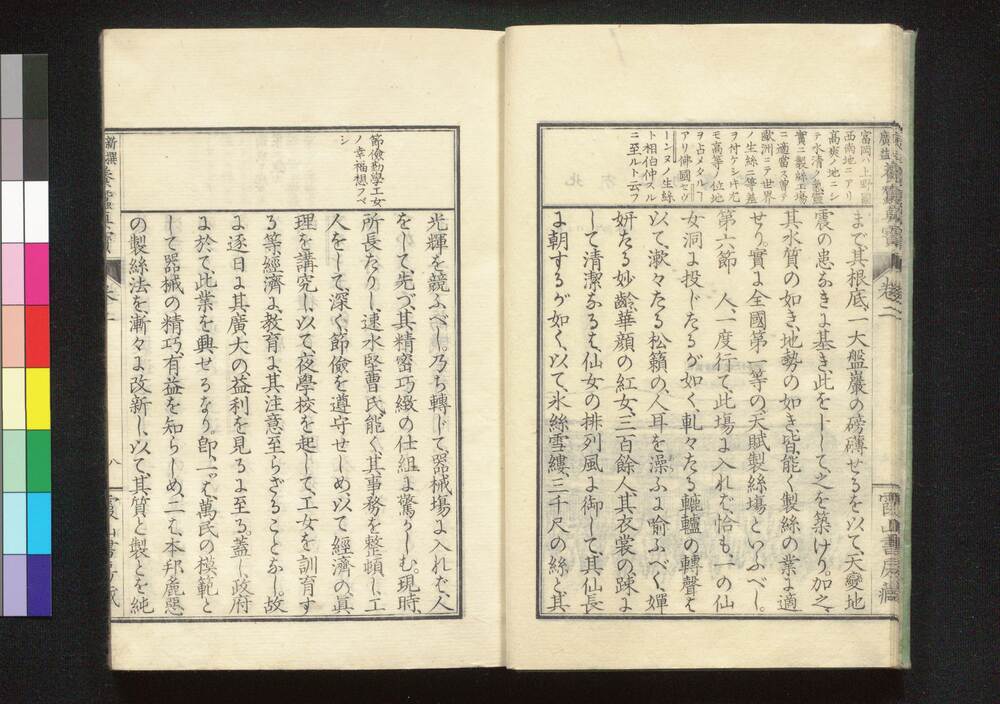 富岡ハ上野國
西南地ニアリ
高爽ノ地ニシ
テ水清ク
實ニ製絲工場
ニ適當ス曽テ
歐洲ニテ世界
ノ生絲ニ等差
ヲ付ケシトキ尤
モ高等ノ位地
ヲ占メタルコト
アリ佛國セヴ
ーンヌノ生絲
ト相伯仲スル
ニ至ルト云フ
まで、其根底、一大盤巖の磅礴せるを以て、天變地
震の患なきに基き、此をトして、之を築けり。加之、
其水質の如き、地勢の如き、皆、能く製絲の業に適
せり。實に全國第一等の、天賦製絲塲といふべし。
第六節　人、一度行て此塲に入れバ、恰も、一の仙
女洞に投じたるが如く、軋々たる轆轤の轉聲ハ
以て、漱々たる松籟の、人耳を澡ふに喻ふべく、嬋
妍たる妙齡華顔の紅女、三百餘人、其衣裳の踈に
して清潔なるハ、仙女の排列風に御して、其仙長
に朝するが如く、以て、氷絲雪縷、三千尺の絲と其
卷二
霞山書房藏
節儉勤學工女
ノ幸福想フベ
シ
光輝を競ふべし。乃ち轉じて、器械塲に入れバ、人
をして、先づ其精密巧緻の仕組に驚かしむ。現時、
所長たりし、速水堅曹氏、能く、其事務を整頓し、工
人をして、深く、節儉を遵守せしめ、以て經濟の眞
理を講究し、以て夜學校を起して、工女を訓育す
る等、經濟に、教育に、其注意至らざることなし。故
に逐日に、其廣大の益利を見るに至る。蓋し、政府
に於て、此業を興せるなり。卽、一ハ萬民の模範と
して、器械の精巧、有益を知らしめ、二ハ、本邦麁惡
の製絲法を、漸々に改新し、以て、其質と製とを純
八